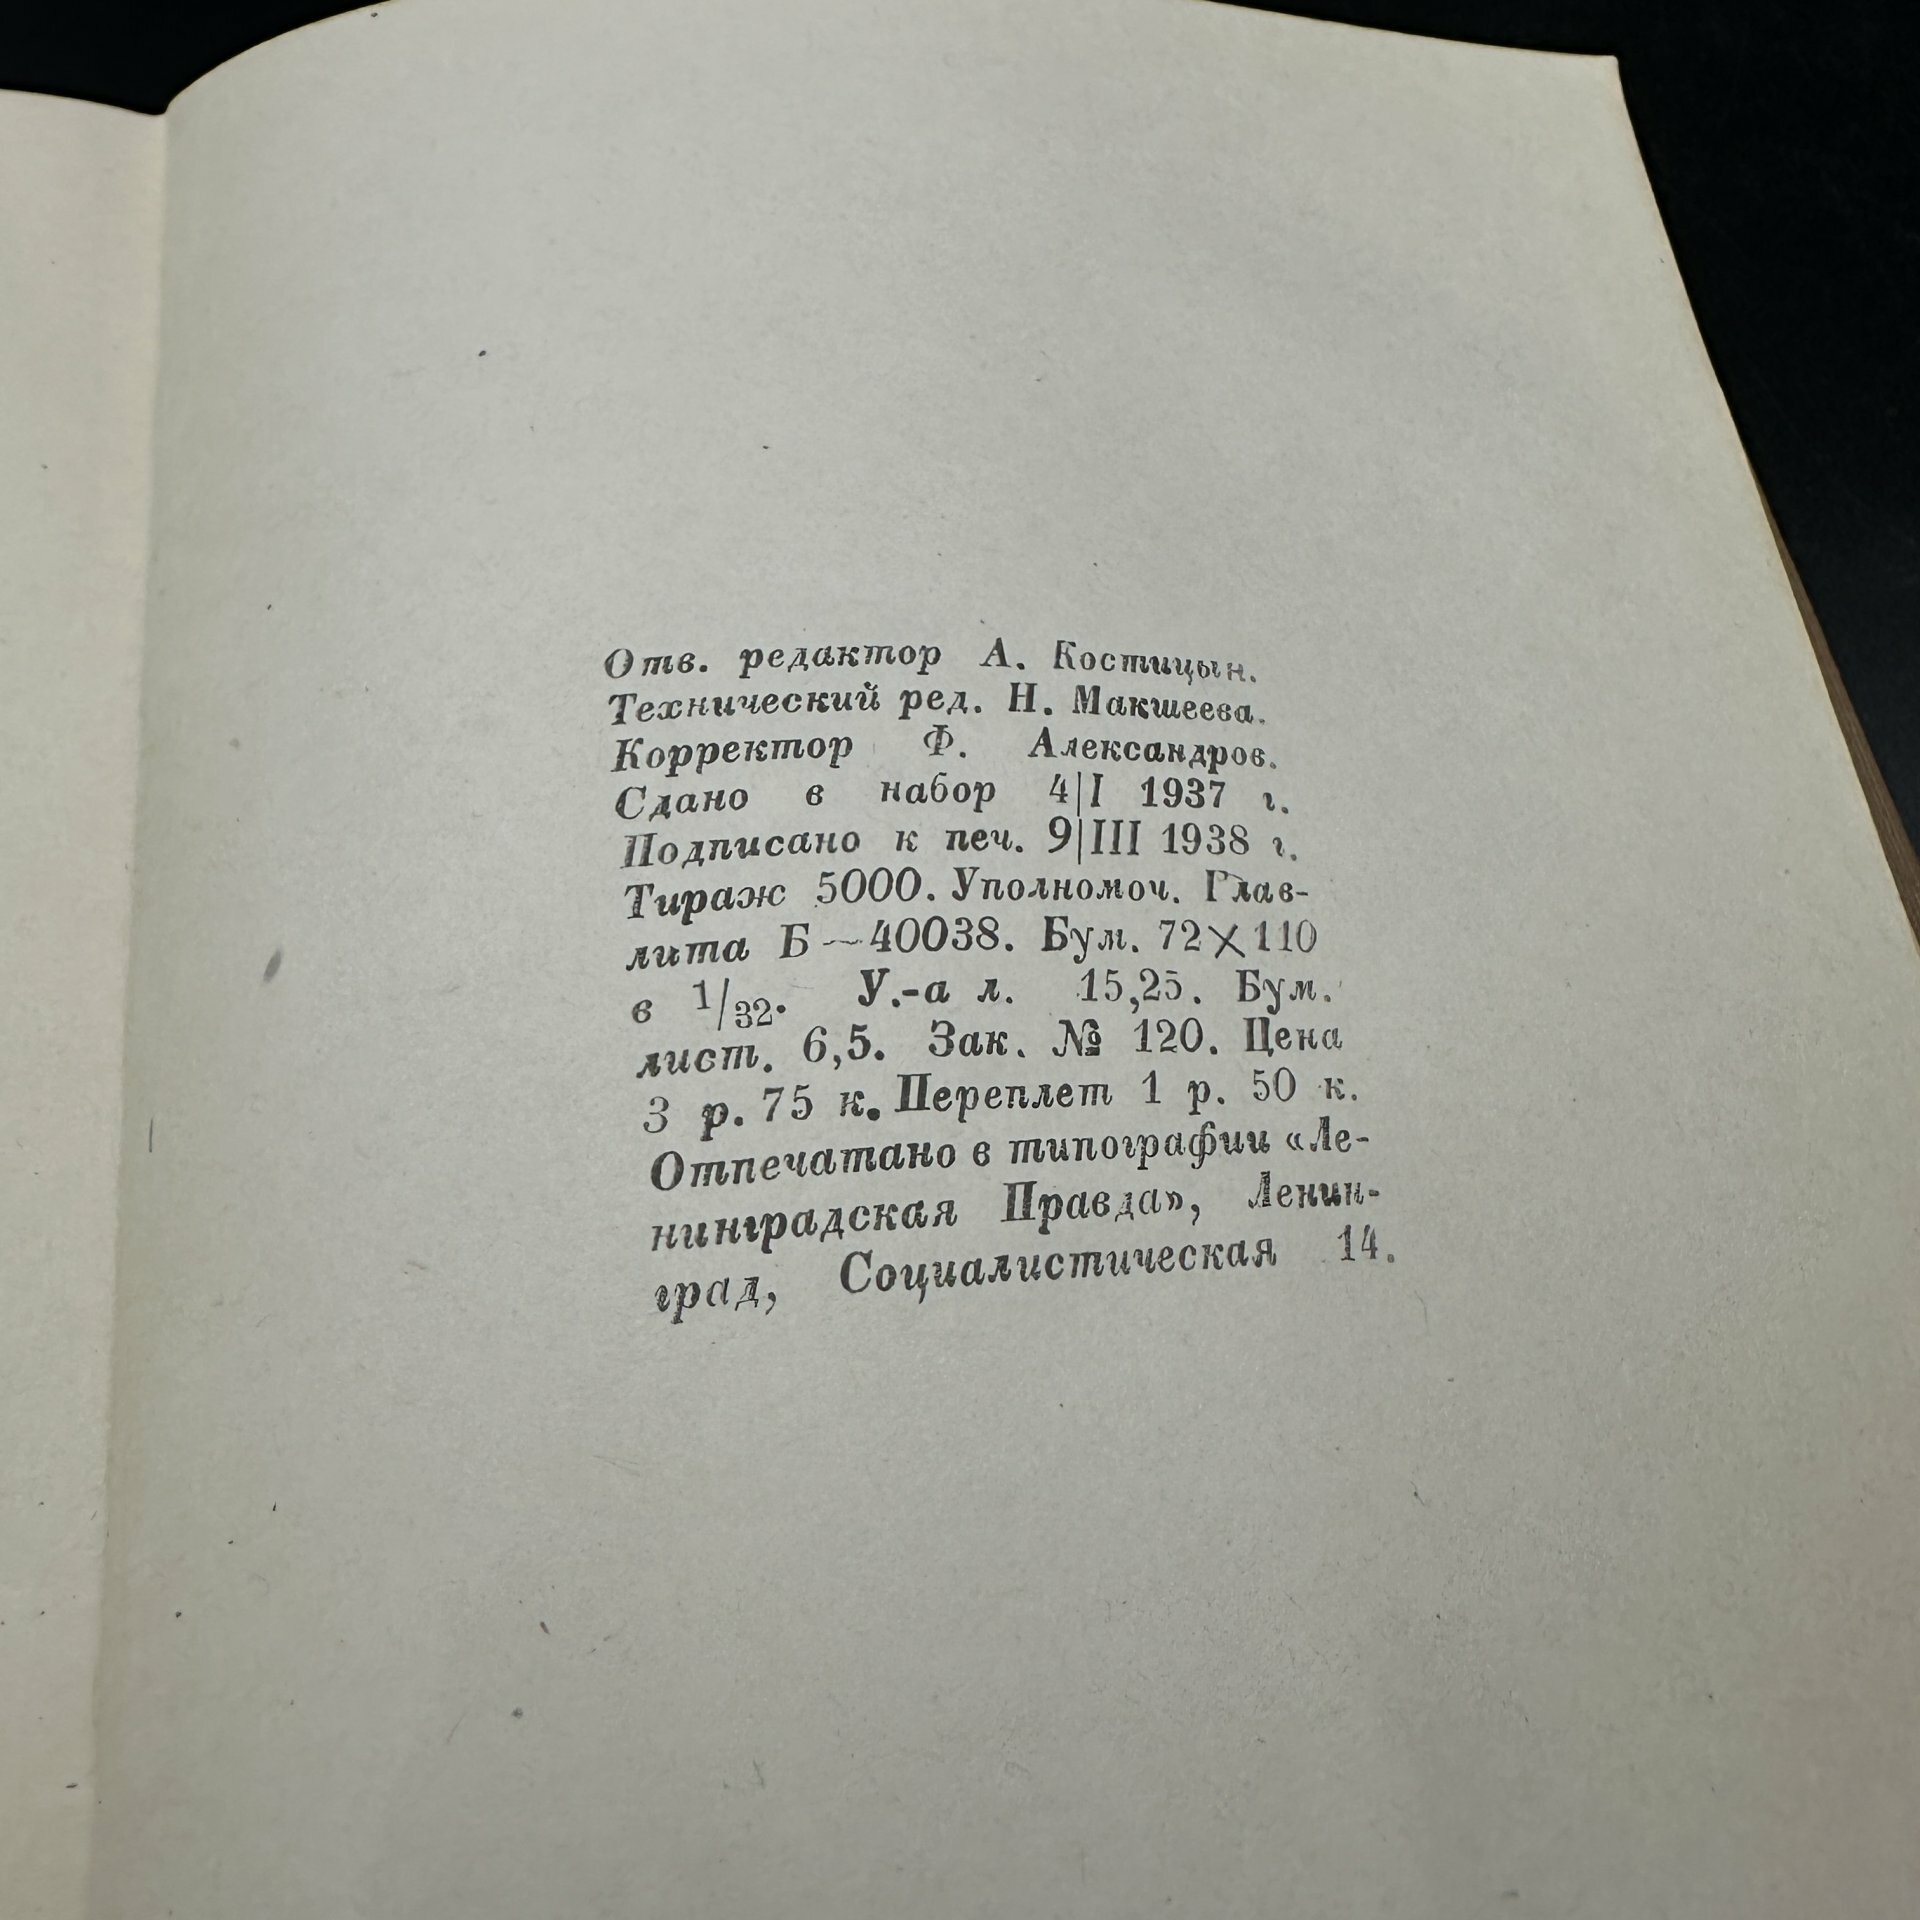 Отв. редактор А. Костицын.
Технический ред. Н. Макшеева.
Корректор Ф. Александров.
Сдано в набор 4|I 1937 г.
Подписано к печ. 9|III 1938 г.
Тираж 5000. Уполномоч. Глав-
лита Б—40038. Бум. 72×110
в 1/32. У.-а л. 15,25. Бум.
лист. 6,5. Зак. № 120. Цена
3 р. 75 к. Переплет 1 р. 50 к.
Отпечатано в типографии «Ле-
нинградская Правда», Ленин-
град, Социалистическая 14.